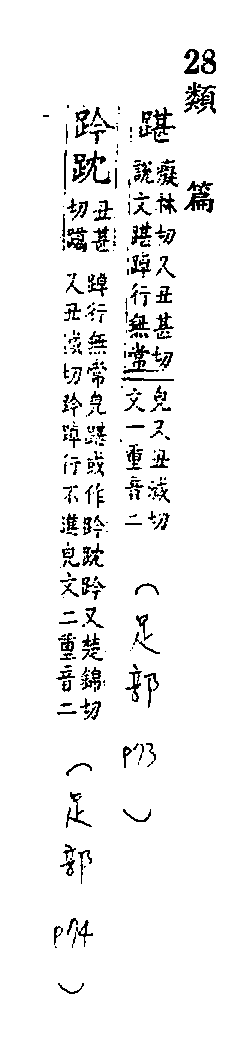 28類篇
踸
癡林切又丑甚切
說文踸踔行無常
皃又丑減切
文一重音二
(足部 P73)
趻
丑甚
切踸
踔行無常皃踸或作趻趻又楚錦切
又丑減切趻踔行不進皃文二重音二
(足部 P74)